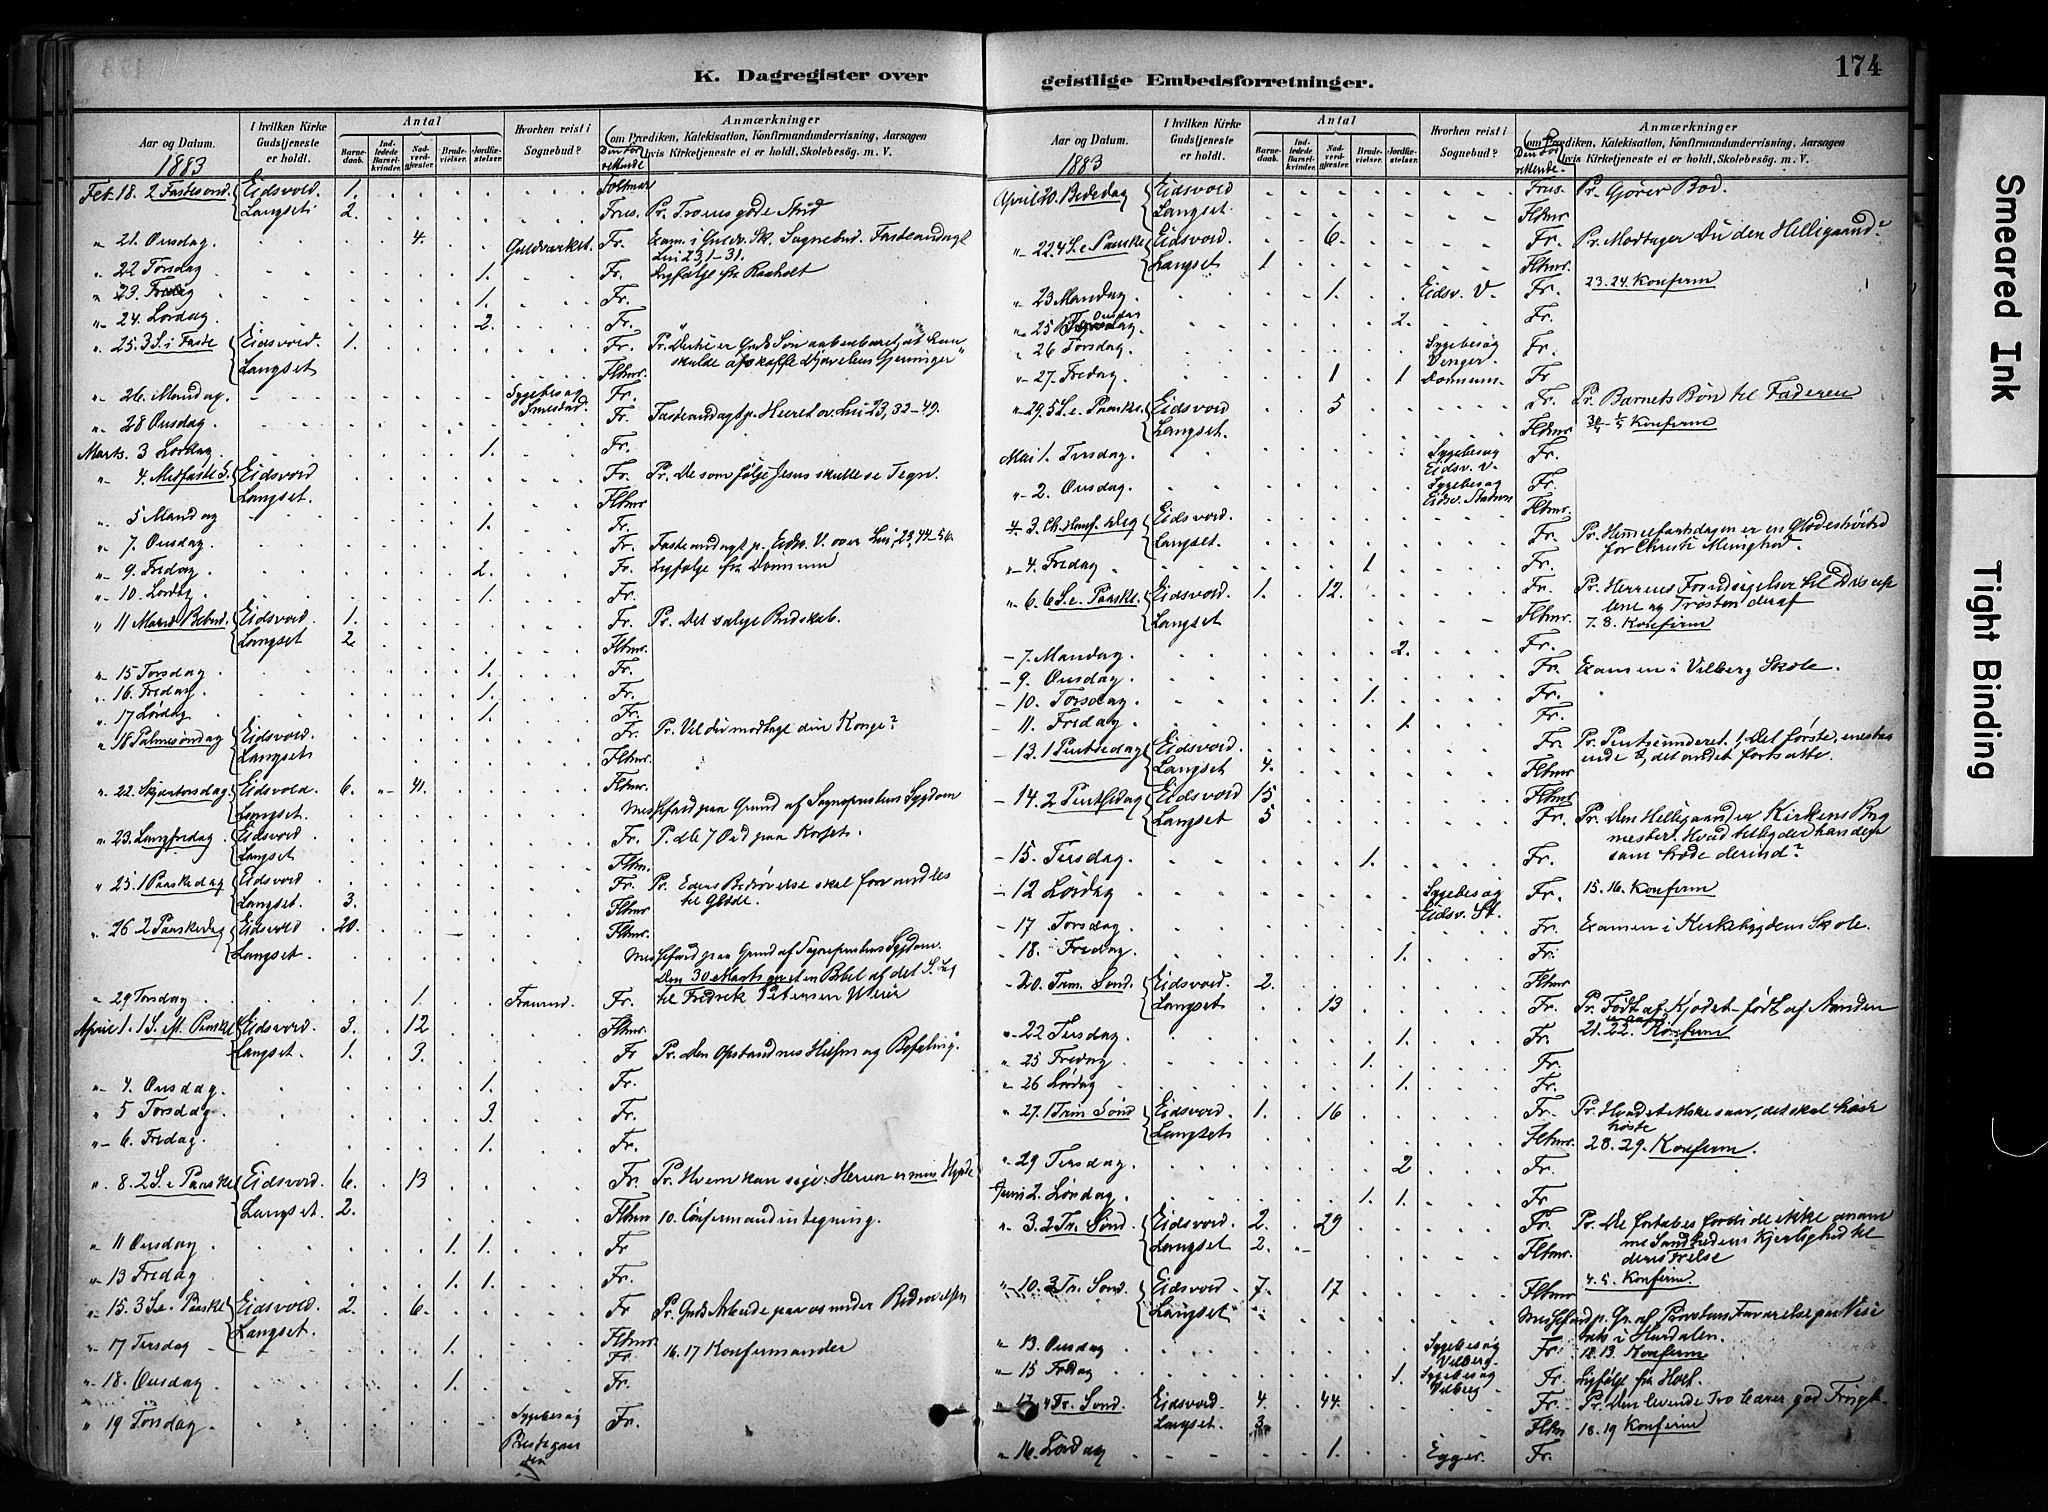 K. Dagregister over
Aar og Datum.
I hvilken Kirke Gudstjeneste er holdt.
Antal
Barnedaab.
Indledede Barselkvinder.
Nadverdgjester.
Brudevielser.
Jordfæstelser.
Hvorhen reist i Sognebud?
Anmærkninger
(om Prædiken, Katekisation, Konfirmandundervisning, Aarsagen hvis Kirketjeneste ei er holdt, Skolebesøg. m. V.
1883
Feb. 18. 2 Fastesønd. Eidsvold. 1.
Langset. 2. Frus. Pr. Troens gode Strid
" 21. Onsdag. 4. Guldværket. Fr. Exam. i Guldv. Sk. Sognebud. Fasteandagt
23, 1-31.
" 22 Torsdag 1. Fr. Ligfølge fr. Raaholt
" 23. Fredag 1. Fr.
" 24. Lørdag. 2. Fr.
" 25. 3 S. i Faste Eidsvold. 1. Fr. Pr. Derfor er Guds Søn aabenbaret, at han
Langset Flhmr. skulde afskaffe Djævelens Gjerninger"
" 26. Mandag. Sygebesøg Fr.
" 28 Onsdag. Fr. Fasteandagt p. Huset ov. Luc 23, 32-49.
Marts. 3 Lørdag 1. Fr.
" 4. Midfaste S. Eidsvold Fr. Pr. De som følge Jesus skulle se Tegn.
Langset. Flhmr
" 5 Mandag 1. Fr.
" 7. Onsdag. Fr. Fasteandagt p. Eidsv. V. over Luc. 23, 44-56.
" 9. Fredag 2. Fr. Ligfølge fra Dønnum
" 10. Lørdag 1. Fr.
" 11 Mariæ Bebud. Eidsvold 1. Fr. Pr. Det salige Budskab.
Langset 2. Flhmr.
" 15 Torsdag 1. Fr.
" 16. Fredag 1. Fr.
" 17 Lørdag 1. Fr.
" 18 Palmesøndag Eidsvold. Fr. Pr. Vil du modtage din Konge?
Langset Flhmr.
" 22. Skjærtorsdag Eidsvold 6. 41. Flhmr.
Langset. Messefald paa Grund af Sognepræstens Sygdom
" 23. Langfredag. Eidsvord Fr. P. de 7 Ord paa Korset.
Langset Flhmr.
" 25. 1 Paaskedag Eidsvord Fr. Pr. Eders Bedrøvelse skal forvandles
Langset. 3. Flhmr til Glæde.
" 26 2 Paaskedag Eidsvold 20. Flhmr.
Langset. Messefald paa Grund af Sognepræstens Sygdom.
Den 30 Marts givet en Bibel af det S.
" 29 Torsdag 1. Fr. til Fredrik Petersen
April 1. 1 S. eft. Paaske Eidsvord. 3. 12 Flhmr.
Langset. 1. 3. Fr Pr. Den Opstandnes Hilsen og Befaling.
" 4. Onsdag. 1. Fr.
" 5 Torsdag 3. Fr.
" 6. Fredag. 1. Fr.
" 8. 2 S. e Paaske Eidsvord 6. 13 Fr. Pr. Hvem kan sige: Herren er min Hyrde
Langset. 2. Flhmr 10. Confirmandintegning.
" 11 Onsdag 1. 1. Fr
" 13 Fredag 1. 1. Fr.
" 15. 3 S. e. Paaske Eidsvold. 2. 6. Fr Pr. Guds Arbeide paa os under Bedrøvelsen
Langset. Flhmr.
" 17 Tirsdag 1. Fr. 16. 17 Konfirmander
" 18. Onsdag 1. Fr.
" 19 Torsdag Sygebesøg Fr.
geistlige Embedsforretninger. 174
Aar og Datum.
I hvilken Kirke Gudstjeneste er holdt.
Antal
Barnedaab.
Indledede Barselkvinder.
Nadverdgjester.
Brudevielser.
Jordfæstelser.
Hvorhen reist i Sognebud?
Anmærkninger
(om Prædiken, Katekisation, Konfirmandundervisning, Aarsagen hvis Kirketjeneste ei er holdt, Skolebesøg. m. V.
1883
April 20. Bededag Eidsvord Frus. Pr. Gjører Bod.
Langset. Flhmr
" 22. 4 S. e Paaske Eidsvord 6. Fr. Pr. Modtager Du den Helligaand?
Langset 1 Flhmr.
" 23 Mandag. 1. Eidsv. V. Fr. 23. 24. Konfirm
" 25 Onsdag 2. Fr.
" 26 Torsdag. Sygebesøg Fr.
Venger.
" 27. Fredag 1 1 Dønnum. Fr
" 29. 5 S. e. Paaske. Eidsvord 5 Fr. Pr. Barnets Bøn til Faderen
Langset. Flhmr. Konfirm
Mai 1. Tirsdag. Sygebesøg Fr.
Eidsv. V.
" 2. Onsdag. Sygebesøg Fr.
Eidsv.
" 3. Ch. Himf. Dag Eidsvord Flhmr.
Langset. Fr. Pr. Himmelfartsdagen er en Glædeshøitid
for Christi Menighed.
" 4. Fredag 1 Fr.
" 6. 6 S. e. Paaske. Eidsvord 1. 12. Fr. Pr. Herrens Forudsigelser til Discip
Langset Flhmr. lene og Trøsten deraf
7. 8. Konfirm
- 7. Mandag. 2. Fr.
- 9. Onsdag. Fr. Examen i Vilberg Skole.
- 10. Torsdag. 1. Fr.
- 11. Fredag 1. Fr.
- 13. 1 Pintsedag Eidsvord. Fr. Pr. Pintseunderet. 1 Det første,
Langset 4. Flhmr. det andet fortsatte.
- 14. 2 Pintsedag Eidsvord 15 Flhmr
Langset 5 Fr. Pr. Den Helligaand er Kirkens Byg
mester. Hvad tilbyder han dem
- 15. Tirsdag. 1. Fr. som træde derind?
- 12 Lørdag Sygebesøg Fr. 15. 16. Konfirm
Eidsv. St.
- 17 Torsdag. Fr. Examen i Kirkebygdens Skole.
- 18. Fredag 1. Fr.
- 20. Trin. Sønd. Eidsvord. 2. Flhmr
Langset. 13 Fr. Pr. Født af Kjødet - født af Aanden
" 22 Tirsdag 1. Fr. 21. 22. Konfirm
- 25 Fredag 1. Fr.
" 26 Lørdag 1. Fr.
" 27. 1 Trin Sønd Eidsvord. 1. 16 Fr. Pr. Hvad et Mske saar, det skal han
Langset. Flhmr. høste
28. 29. Konfirm.
" 29 Tirsdag 2 Fr.
Juni 2. Lørdag 1. 1. Fr
" 3. 2 Tr. Sønd. Eidsvord. 2. 29 Fr. Pr. De fortabes fordi de ikke anam
Langset 2. Flhmr. me Sandhedens Kjerlighed til
deres Frelse
4. 5. Konfirm.
" 10. 3 Tr. Sønd. Eidsvord 7. 17 Flhmr
Langset Messefald p. Gr. af Provstens Fraværelse paa Visi
tats i Hurdalen.
" 13. Onsdag Sygebesøg Fr. 12. 13. Konfirm
Vilberg.
" 15 Fredag 1 Sygebesøg Fr. Ligfølge fra Holt.
Vilberg
" 17 4 Tr. Sønd. Eidsvord. 4. 44. Fr. Pr. Den levende Tro bærer god Frugt.
Langset. 3 Flhmr 18. 19 Konfirm
" 16. Lørdag 1. Egger. Fr.
Smeared Ink
Tight Binding